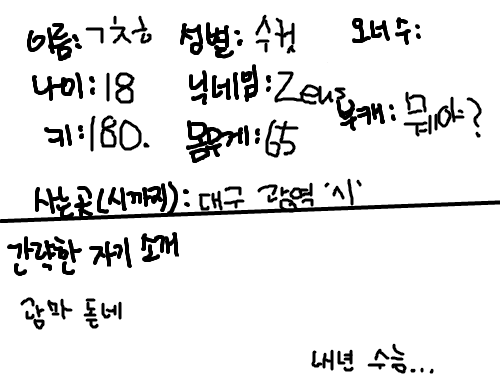 이름: ㄱㅊㅎ 성별: 수컷 오너 수:
나이: 18 닉네임: Zeus 부캐: 뭬야?
키: 180. 몸무게: 65
사는곳(시까지): 대구 광역 '시'
간략한 자기 소개
광마 돋네
내년 수능...